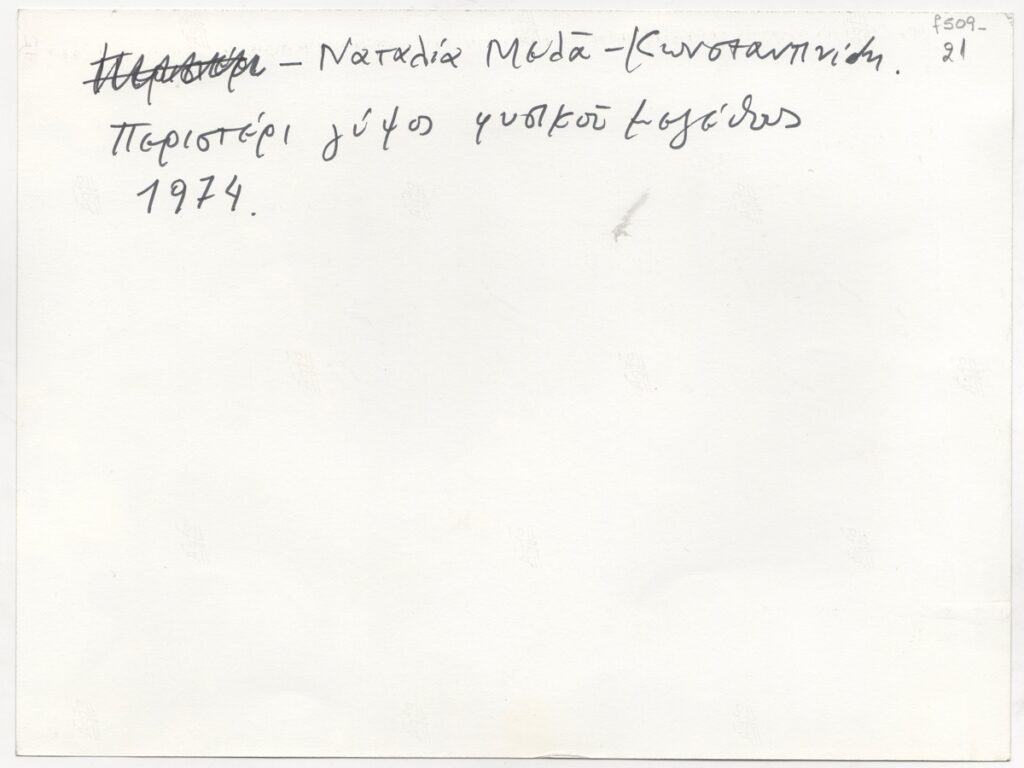 f509-
21
Περιστέρι – Ναταλία Μελᾶ – Κωνσταντινίδη.
Περιστέρι γύψος φυσικοῦ μεγέθους
1974.